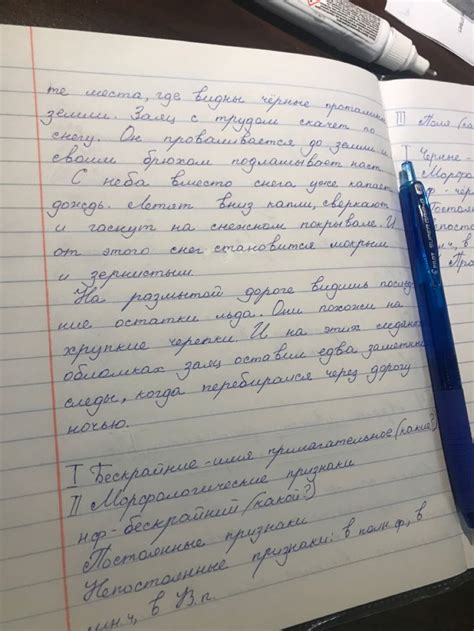 те места, где видны чёрные проталины
земли. Заяц с трудом скачет по
снегу. Он проваливается до земли и
своим брюхом подмашывает наст.
С неба вместо снега уже капает
дождь. Летят вниз капли, сверкают
и гаснут на снежном покрывале. И
от этого снег становится мокрым
и зернистым.
На размытой дороге видишь послед
ние остатки льда. Они похожи на
хрупкие черепки. И на этих ледяных
обломках заяц оставил едва заметные
следы, когда перебирался через дорогу
ночью.
I Бескрайние - имя прилагательное (какие?)
II Морфологические признаки
нф - бескрайний (какой?)
Постоянные признаки
Непостоянные признаки: в полн.ф, в
мн.ч, в П.п.
III Поля (ка
I Чёрные
Морфо
нф - чер
Постоя
Непост
мн.ч, в